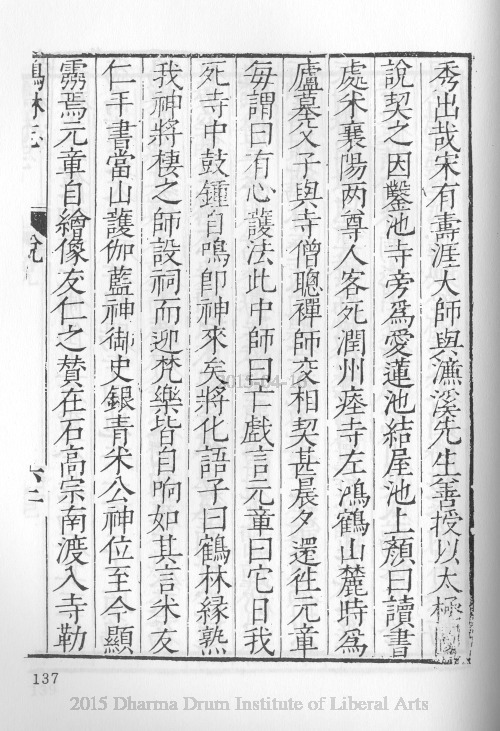 秀出哉宋有壽涯大師與濂溪先生善授以太極
說契之因鑿池寺旁爲愛蓮池結屋池上顏曰讀書
處米襄陽两尊人客死潤州瘞寺左鴻鶴山麓時爲
廬墓父子與寺僧聰禪師交相契甚晨夕還徃元章
每謂曰有心護法此中師曰亡戲言元章曰它日我
死寺中鼓鍾自鳴卽神來矣將化語子曰鶴林緣熟
我神將棲之師設祠而迎梵樂皆自响如其言米友
仁手書當山護伽藍神御史銀青米公神位至今顯
霛焉元章自繪像友仁之賛在石高宗南渡入寺勒
鶴林志
說
六二
137
2015-04-10
2015 Dharma Drum Institute of Liberal Arts